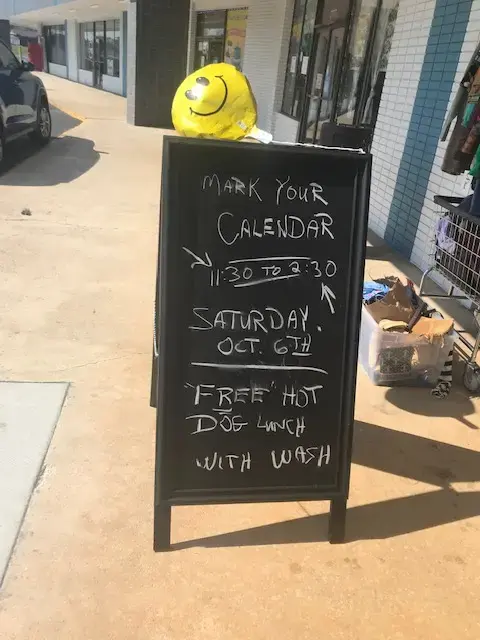 MARK YOUR
CALENDAR
11:30 TO 2:30
SATURDAY.
OCT. 6TH
"FREE" HOT
DOG LUNCH
WITH WASH